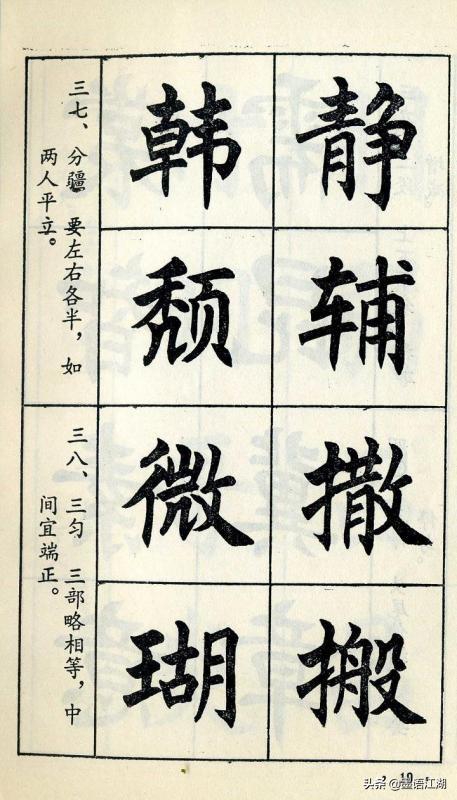 三七、分疆 要左右各半，如
两人平立。
静 韩
辅 颓
三八、三匀 三部略相等，中
间宜端正。
撒 微
搬 瑚
· 19 ·
头条 @墨语江湖